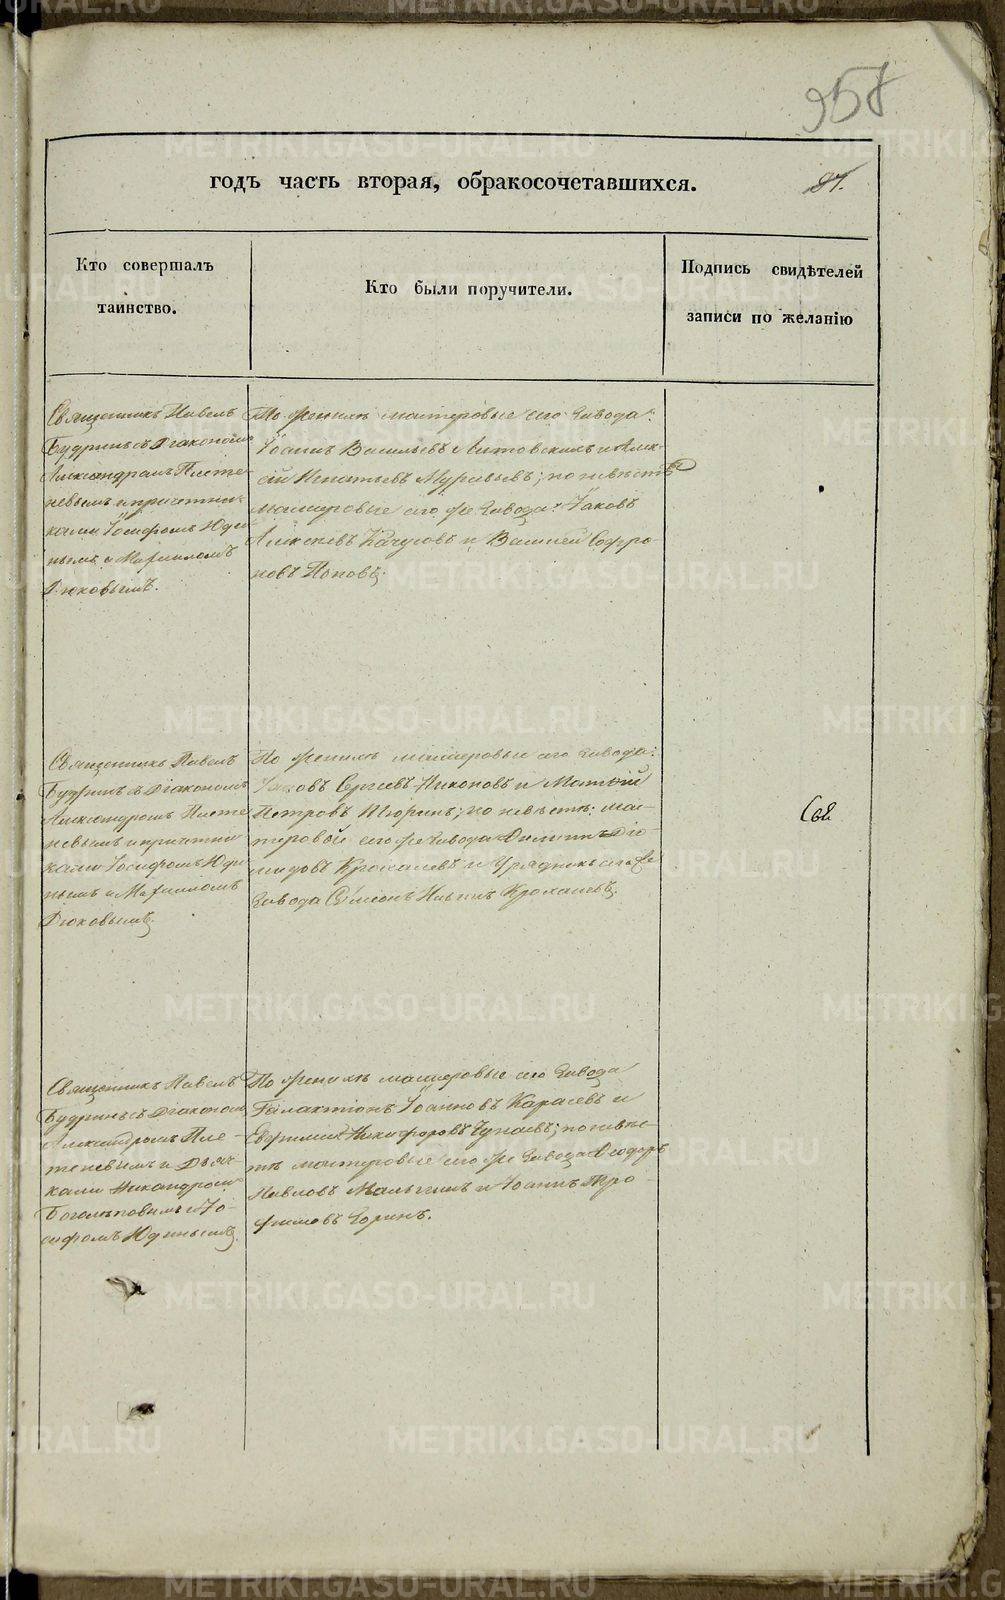 958
годъ часть вторая, обракосочетавшихся.
87.
Кто совершалъ
таинство.
Кто были поручители.
Подпись свидѣтелей
записи по желанію
Священникъ Павелъ
Будринъ съ Діакономъ
Александромъ Плете
невымъ и причетни-
ками Іосифомъ Юди
нымъ и
Дюковымъ.
По женихѣ мастеровые сего завода:
Іоаннъ Васильевъ Литовскихъ и Алек-
сій Игнатьевъ Муравьевъ; по невѣстѣ
мастеровые сего же завода: Іаковъ
Алексѣевъ и Василій Софро
новъ Поповъ.
Священникъ Павелъ
Будринъ съ Діакономъ
Александромъ Плете
невымъ и причетни
ками Іосифомъ Юди
нымъ и
Дюковымъ.
По женихѣ мастеровые сего завода:
Іаковъ Сергѣевъ Никоновъ и Матѳій
Петровъ Тюринъ; по невѣстѣ: мас-
теровой сего же завода Филиппъ Діо
мидовъ Крохалевъ и Урядникъ сего же
завода Сѵмеонъ Ильинъ Крохалевъ.
Священникъ Павелъ
Будринъ съ Діакономъ
Александромъ Пле-
теневымъ и Дьяч-
ками Никандромъ
Боголѣповымъ и Іо-
сифомъ Юдинымъ.
По женихѣ мастеровые сего завода
Галактіонъ Іоанновъ Карасевъ и
Евфимій Никифоровъ Чунаевъ; по невѣс-
тѣ мастеровые сего же завода Ѳеодоръ
Павловъ Малыгинъ и Іоаннъ Тро-
фимовъ Зоринъ.
METRIKI.GASO-URAL.RU